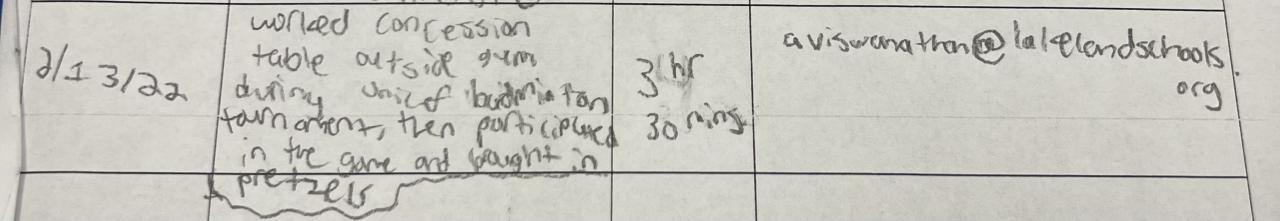 2/13/22
worked concession
table outside gym
during unicef badminton
tournament, then participated
in the game and bought in
pretzels
3 hr
30 mins
aviswanathan@lakelandschools.
org